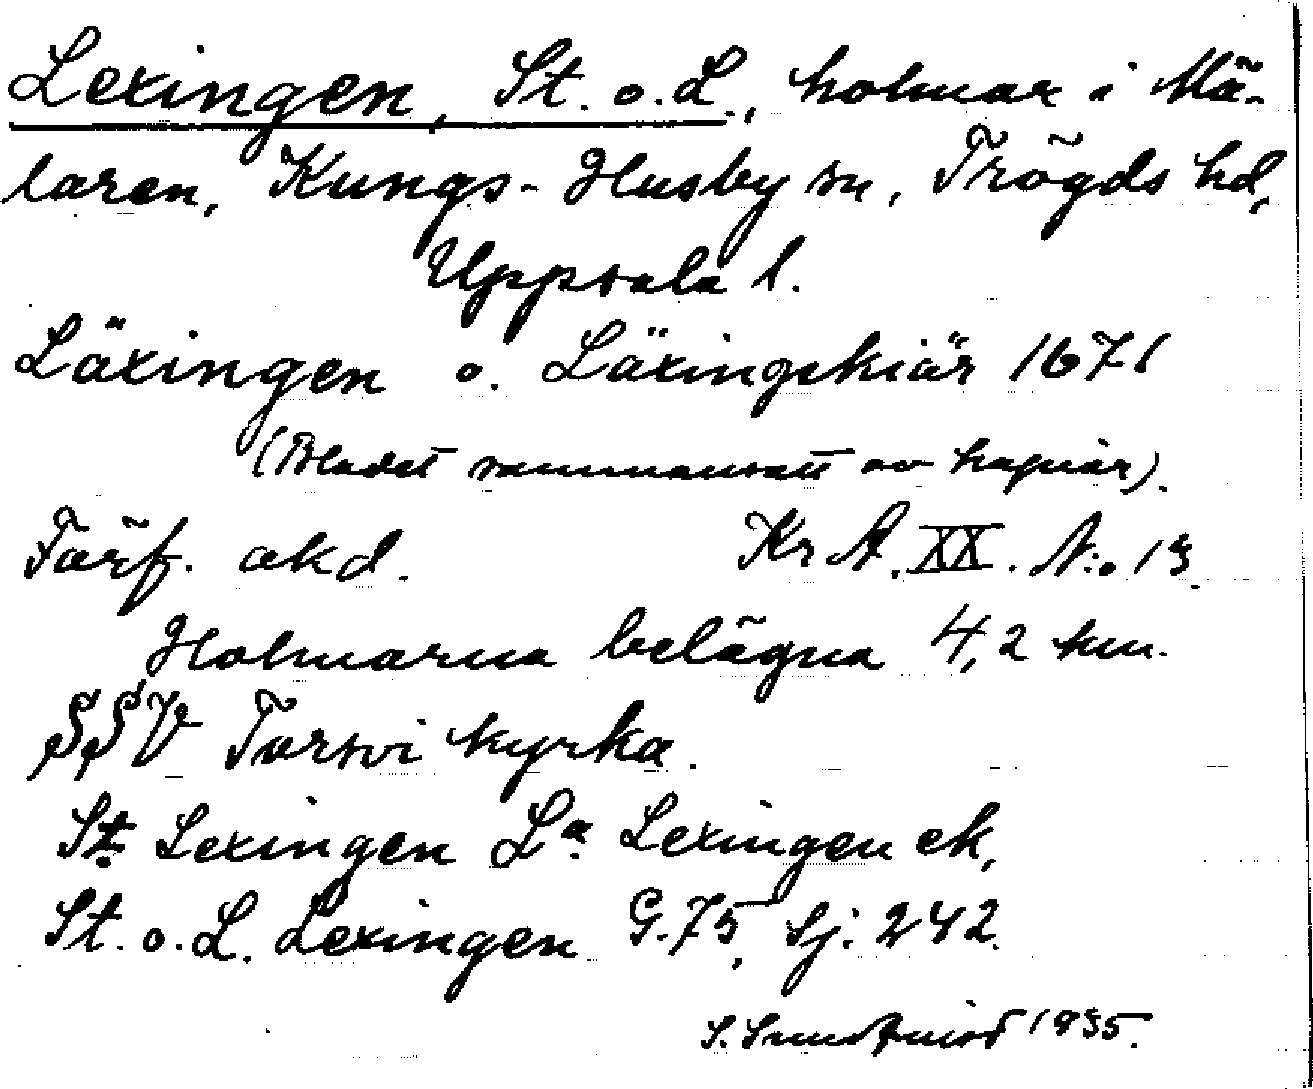 Lexingen, St. o. L., holmar i Mä-
laren, Kungs-Husby sn, Trögds hd,
Uppsala l.
Läxingen o. Läxingskiär 1671
(Bladet sammansatt av kopior).
Förf. okd. Kr A. XX. N:o 13
Holmarna belägna 4,2 km.
SSV Torsvi kyrka.
St. Lexingen La Lexingen ek,
St. o. L. Lexingen G. 75, Sj: 242.
S. Sundqvist 1935.